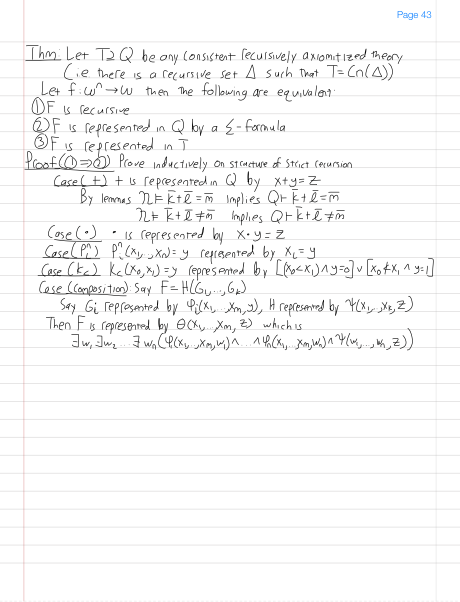 Page 43
Thm: Let T⊇Q be any consistent recursively axiomitized theory
(i.e there is a recursive set Δ such that T=Cn(Δ))
Let f:ωⁿ→ω then the following are equivalent:
① F is recursive
② F is represented in Q by a Σ-formula
③ F is represented in T
Proof(①⇒②) Prove inductively on structure of strict recursion
Case(+) + is represented in Q by x+y=z
By lemmas 𝔑⊨ k̄+l̄=m̄ implies Q⊢ k̄+l̄=m̄
𝔑⊨ k̄+l̄≠m̄ implies Q⊢ k̄+l̄≠m̄
Case(·) · is represented by x·y=z
Case(Pᵢⁿ) Pᵢⁿ(x₁,...,xₙ)=y represented by xᵢ=y
Case(K<) K<(x₀,x₁)=y represented by [(x₀<x₁)∧y=0]∨[x₀≮x₁∧y=1]
Case(composition): Say F=H(G₁,...,Gₖ)
Say Gᵢ represented by φᵢ(x₁,...,xₘ,y), H represented by Ψ(x₁,...,xₖ,z)
Then F is represented by Θ(x₁,...,xₘ,z) which is
∃w₁∃w₂...∃wₙ(φ(x₁,...,xₘ,w₁)∧...∧φₙ(x₁,...,xₘ,wₙ)∧Ψ(w₁,...,wₙ,z))